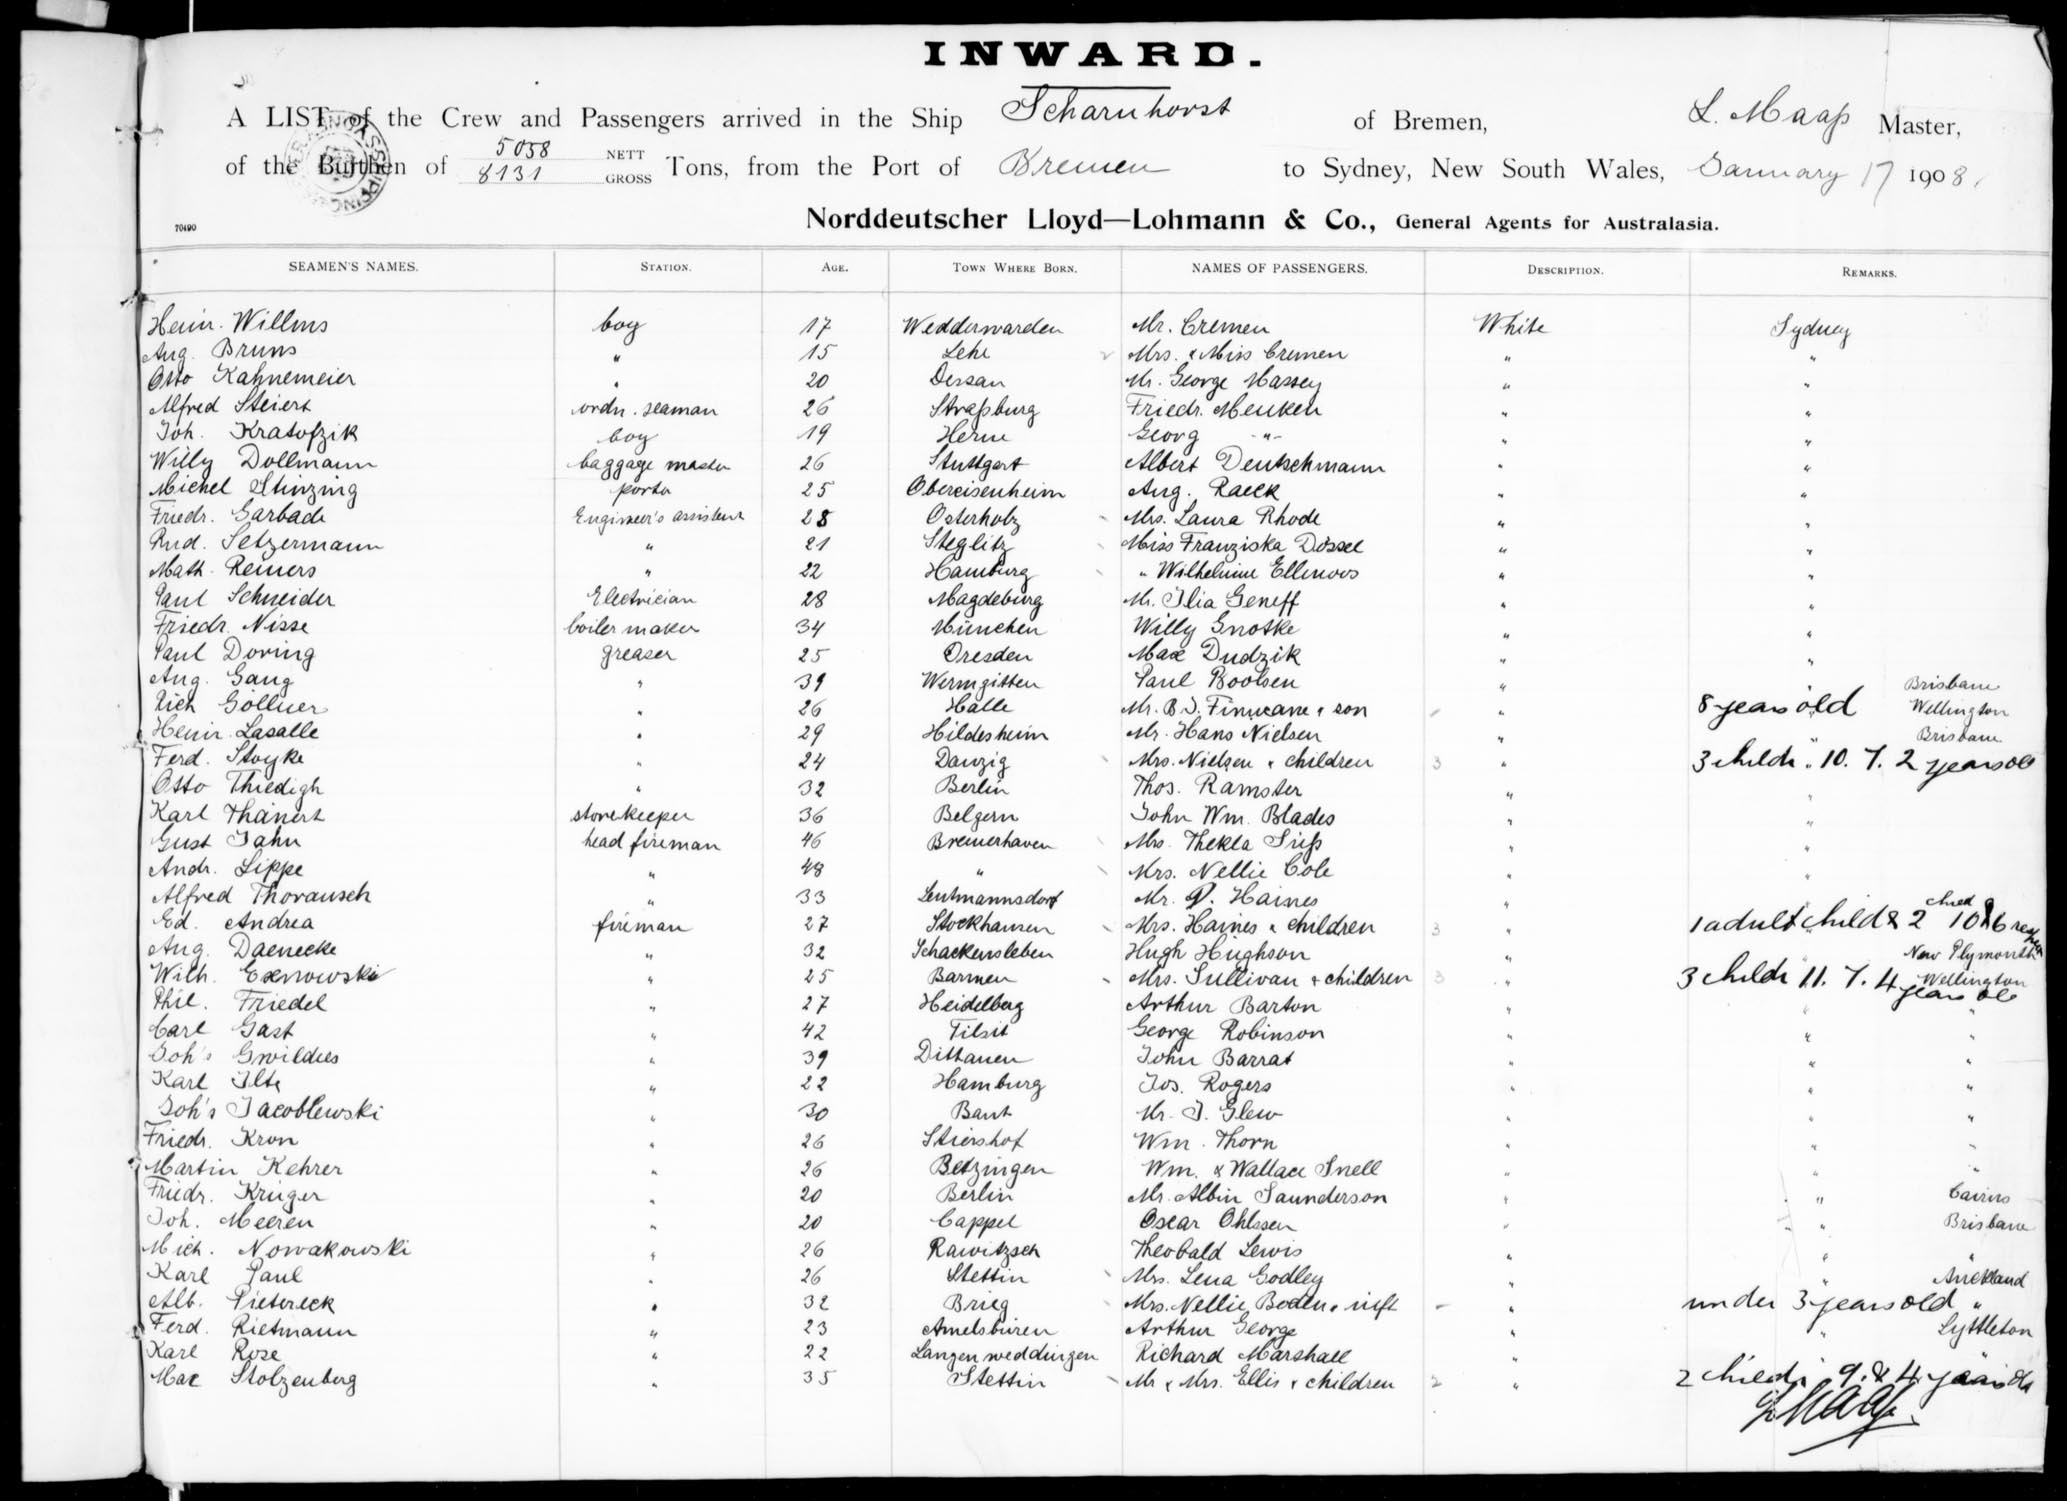 INWARD.
A LIST of the Crew and Passengers arrived in the Ship Scharnhorst of Bremen, L. Maaß Master,
of the Burthen of 5058 NETT 8131 GROSS Tons, from the Port of Bremen to Sydney, New South Wales, January 17 1908.
70490 Norddeutscher Lloyd—Lohmann & Co., General Agents for Australasia.
SEAMEN'S NAMES. STATION. AGE. TOWN WHERE BORN. NAMES OF PASSENGERS. DESCRIPTION. REMARKS.
Heinr. Willms boy 17 Wedderwarden Mr. Cremen White Sydney
Aug. Bruns " 15 Lehe Mrs. & Miss Cremen " "
Otto Kahnemeier " 20 Dessau Mr. George Massey " "
Alfred Steiert ordn. seaman 26 Straßburg Friedr. Menken " "
Joh. Kratofzik boy 19 Herne Georg -"- " "
Willy Dollmann baggage master 26 Stuttgart Albert Deutschmann " "
Michel Stinzing porter 25 Obereisenheim Aug. Raeck " "
Friedr. Garbade Engineer's assistent 28 Osterholz Mrs. Laura Rhode " "
Rud. Setzermann " 21 Steglitz Miss Franziska Dössel " "
Math. Reiners " 22 Hamburg " Wilhelmine Ellmoos " "
Paul Schneider Electrician 28 Magdeburg Mr. Ilia Geneff " "
Friedr. Nisse boiler maker 34 München Willy Gnotke " "
Paul Döring greaser 25 Dresden Max Dudzik " "
Aug. Gang " 39 Wormditten Paul Boolsen " Brisbane
Rich Göllner " 26 Halle Mr. B. J. Finucane & son " 8 years old Wellington
Heinr. Lasalle " 29 Hildesheim Mr. Hans Nielsen " " Brisbane
Ferd. Stoyke " 24 Danzig Mrs. Nielsen & children 3 " 3 childr. 10. 7. 2 years old
Otto Thiedigh " 32 Berlin Thos. Ramster " "
Karl Thänert storekeeper 36 Belgern John Wm. Blades " "
Gust Jahn head fireman 46 Bremerhaven Mrs. Thekla Süß " "
Andr. Lippe " 48 " Mrs. Nellie Cole " "
Alfred Thorausch " 33 Leutmannsdorf Mr. P. Haines "
Ed. Andrea fireman 27 Stockhausen Mrs. Haines & children 3 1 adult child & 2 10 & 6
Aug. Daenecke " 32 Schackensleben Hugh Hughson " New Plymouth
Wilh. Exnowski " 25 Barmen Mrs. Sullivan & children 3 " 3 childr 11. 7. 4 years old Wellington
Phil. Friedel " 27 Heidelberg Arthur Barton " " "
Carl Gast " 42 Tilsit George Robinson " " "
Joh's Gwildies " 39 Dittauen John Barrat " " "
Karl Ilte " 22 Hamburg Jos. Rogers " " "
Joh's Jacoblewski " 30 Bant Mr. J. Glew " " "
Friedr. Kron " 26 Stiershof Wm. Thorn " " "
Martin Kehrer " 26 Betzingen Wm. & Wallace Snell " " "
Friedr. Krüger " 20 Berlin Mr. Albin Saunderson " " Cairns
Joh. Meeren " 20 Cappel Oscar Ohlssen " " Brisbane
Mich. Nowakowski " 26 Rawitzsch Theobald Lewis " " "
Karl Paul " 26 Stettin Mrs. Lena Godley " " Auckland
Alb. Pietereck " 32 Brieg Mrs. Nellie Boden & inft " under 3 years old "
Ferd. Rietmann " 23 Amelsbüren Arthur George " " Lyttleton
Karl Rose " 22 Langenweddingen Richard Marshall " " "
Max Stolzenberg " 35 Stettin Mr & Mrs. Ellis & children 2 " 2 childr 9. & 4 years old
L. Maaß.